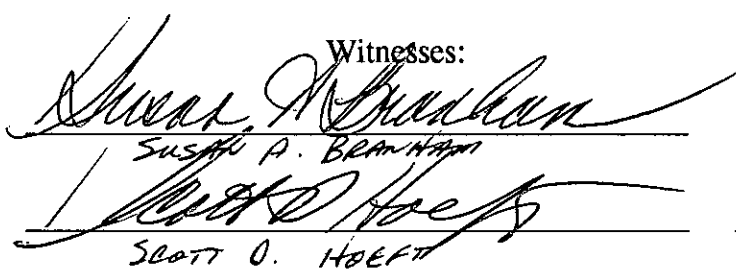 Witnesses:
Susan A. Branham
SUSAN A. BRANHAM
Scott D Hoeft
SCOTT D. HOEFT